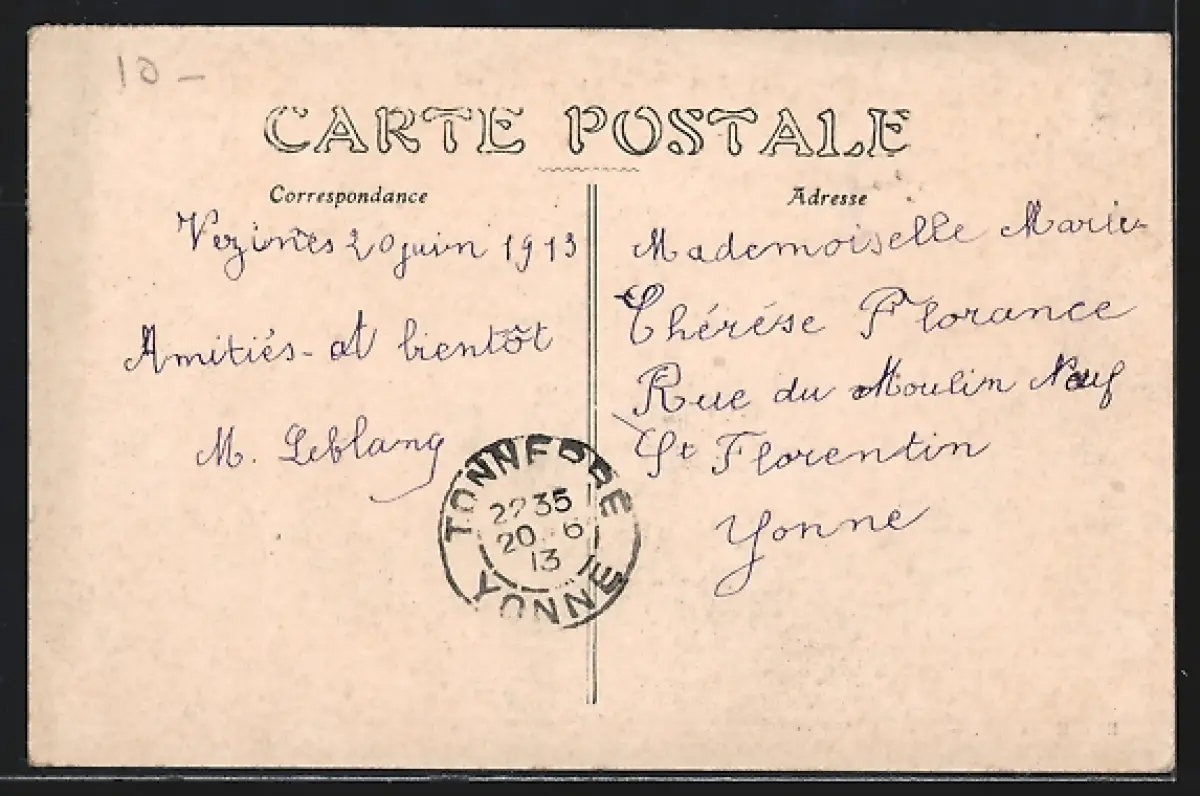 10 -
CARTE POSTALE
Correspondance
Vezinnes 20 juin 1913
Amitiés - et bientôt
M. Leblanq
Adresse
Mademoiselle Marie-
Thérése Florance
Rue du Moulin Neuf
St Florentin
Yonne
TONNERRE
22 35
20 - 6
13
YONNE